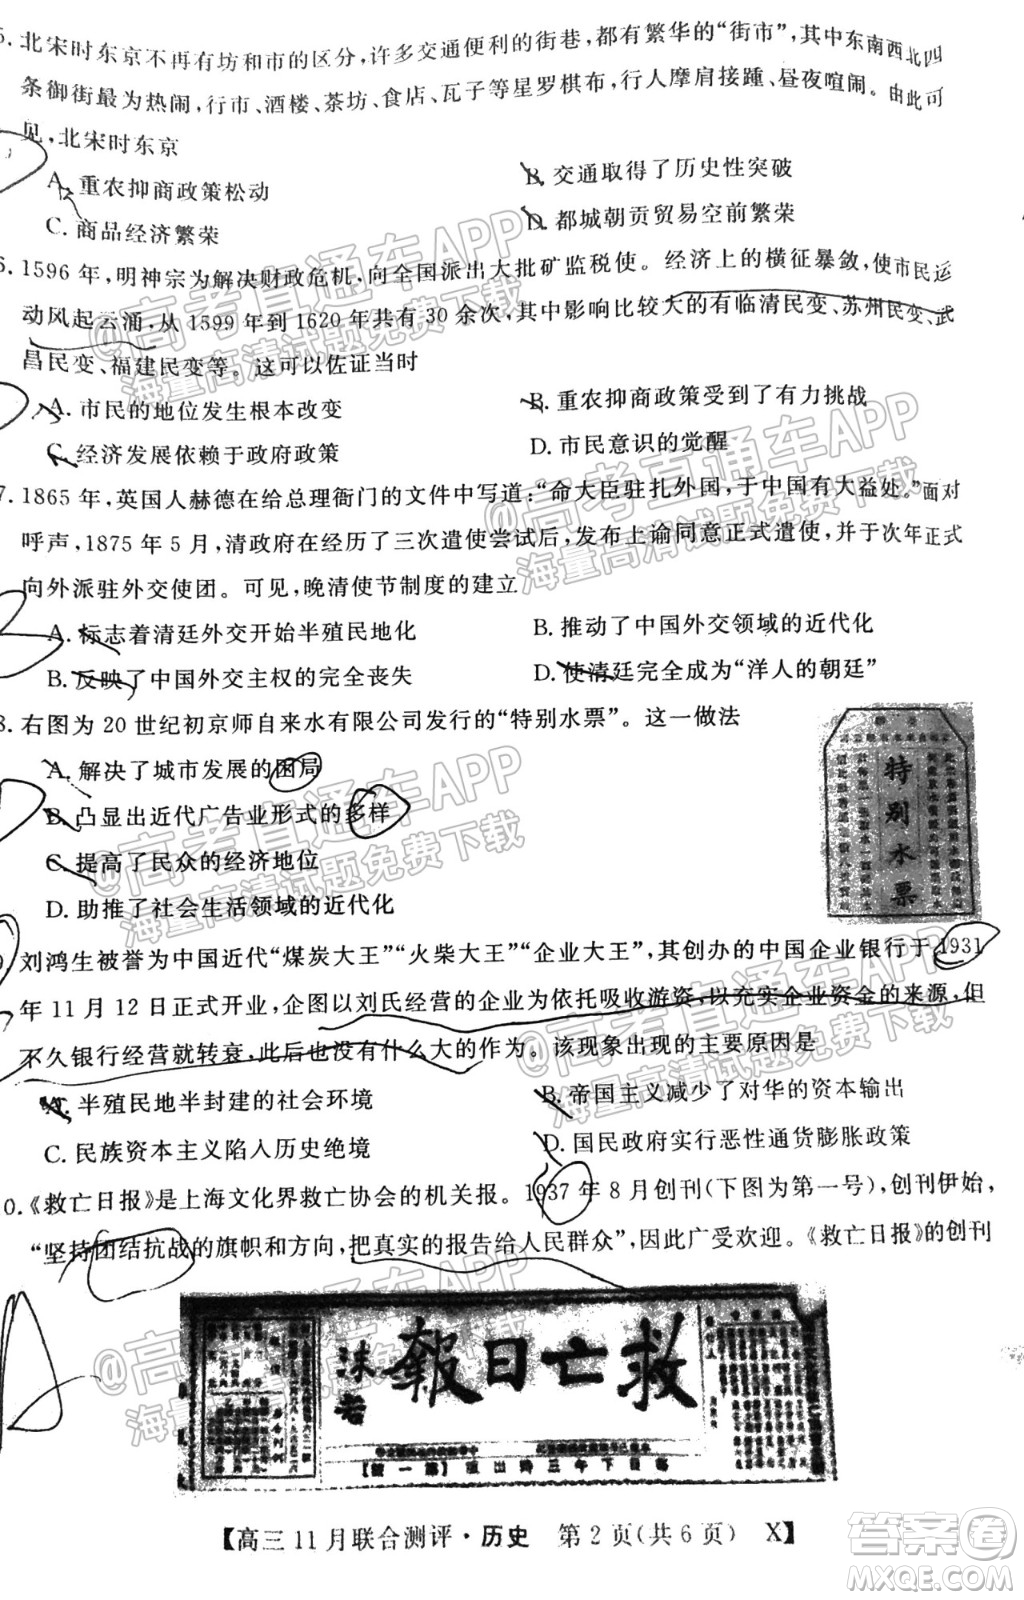 5. 北宋时东京不再有坊和市的区分，许多交通便利的街巷，都有繁华的“街市”，其中东南西北四
条御街最为热闹，行市、酒楼、茶坊、食店、瓦子等星罗棋布，行人摩肩接踵、昼夜喧闹。由此可
见，北宋时东京
A. 重农抑商政策松动
B. 交通取得了历史性突破
C. 商品经济繁荣
D. 都城朝贡贸易空前繁荣
6. 1596 年，明神宗为解决财政危机，向全国派出大批矿监税使。经济上的横征暴敛，使市民运
动风起云涌，从 1599 年到 1620 年共有 30 余次，其中影响比较大的有临清民变、苏州民变、武
昌民变、福建民变等。这可以佐证当时
A. 市民的地位发生根本改变
B. 重农抑商政策受到了有力挑战
C. 经济发展依赖于政府政策
D. 市民意识的觉醒
7. 1865 年，英国人赫德在给总理衙门的文件中写道：“命大臣驻扎外国，于中国有大益处。”面对
呼声，1875 年 5 月，清政府在经历了三次遣使尝试后，发布上谕同意正式遣使，并于次年正式
向外派驻外交使团。可见，晚清使节制度的建立
A. 标志着清廷外交开始半殖民地化
B. 推动了中国外交领域的近代化
B. 反映了中国外交权的完全丧失
D. 使清廷完全成为“洋人的朝廷”
8. 右图为 20 世纪初京师自来水有限公司发行的“特别水票”。这一做法
A. 解决了城市发展的困局
B. 凸显出近代广告业形式的多样
C. 提高了民众的经济地位
D. 助推了社会生活领域的近代化
特别水票
9. 刘鸿生被誉为中国近代“煤炭大王”“火柴大王”“企业大王”，其创办的中国企业银行于 1931
年 11 月 12 日正式开业，企图以刘氏经营的企业为依托吸收游资，以充实企业资金的来源，但
不久银行经营就转衰，此后也没有什么大的作为。该现象出现的主要原因是
A. 半殖民地半封建的社会环境
B. 帝国主义减少了对华的资本输出
C. 民族资本主义陷入历史绝境
D. 国民政府实行恶性通货膨胀政策
10.《救亡日报》是上海文化界救亡协会的机关报。1937 年 8 月创刊（下图为第一号），创刊伊始，
“坚持团结抗战的旗帜和方向，把真实的报告给人民群众”，因此广受欢迎。《救亡日报》的创刊
報日亡救
沫若
【高三 11 月联合测评·历史 第 2 页（共 6 页） X】
@高考直通车APP
海量高清试题免费下载
@高考直通车APP
海量高清试题免费下载
@高考直通车APP
海量高清试题免费下载
@高考直通车APP
海量高清试题免费下载
@高考直通车APP
海量高清试题免费下载
答案圈
MXQE.COM